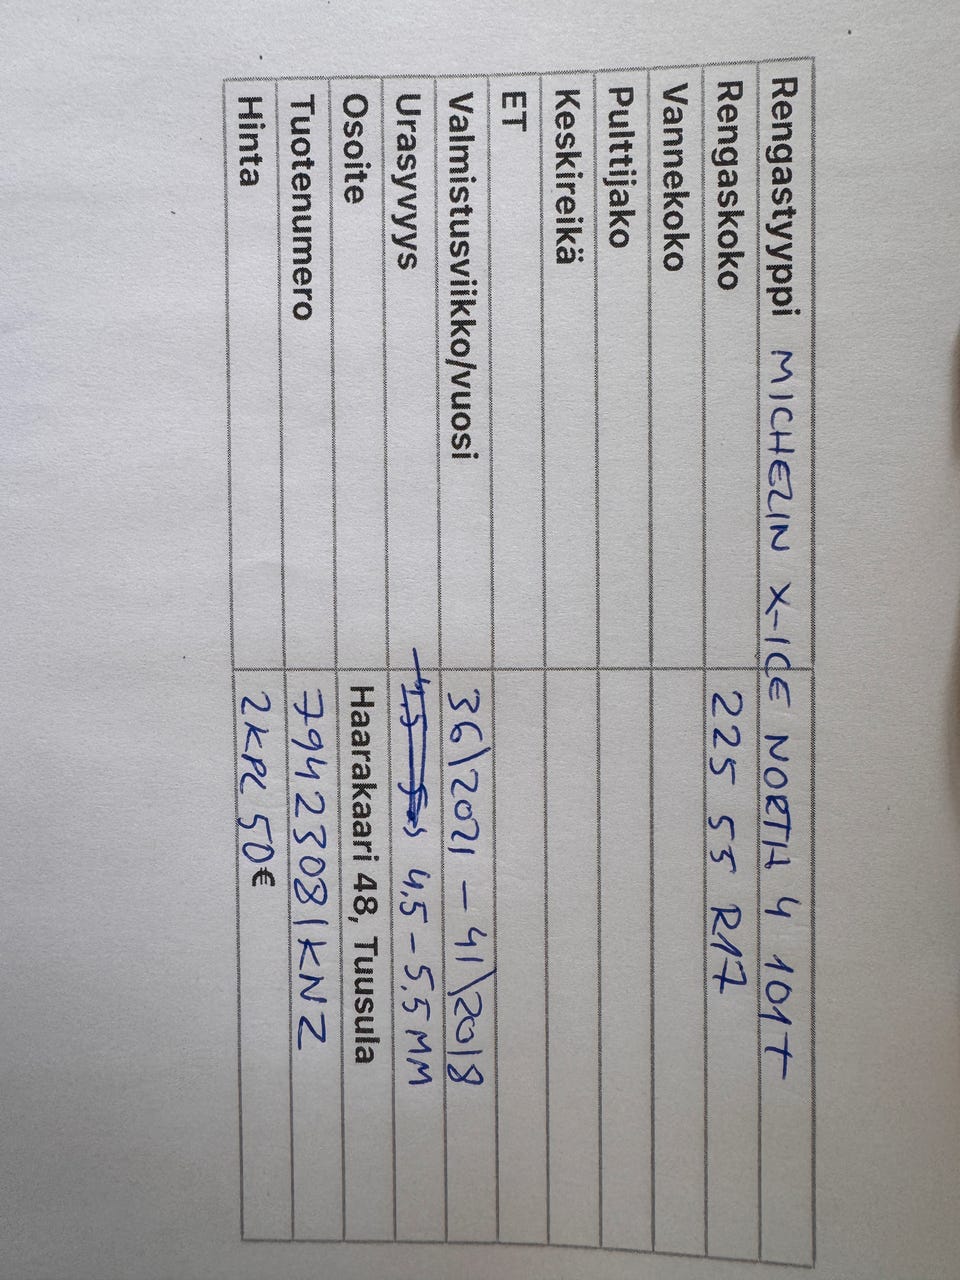 Rengastyyppi MICHELIN X-ICE NORTH 4 101T
Rengaskoko 225 55 R17
Vannekoko
Pulttijako
Keskireikä
ET
Valmistusviikko/vuosi 36\2021 – 41\2018
Urasyvyys 4,5 – 5,5 MM
Osoite Haarakaari 48, Tuusula
Tuotenumero 79423081KNZ
Hinta 2KPL 50€